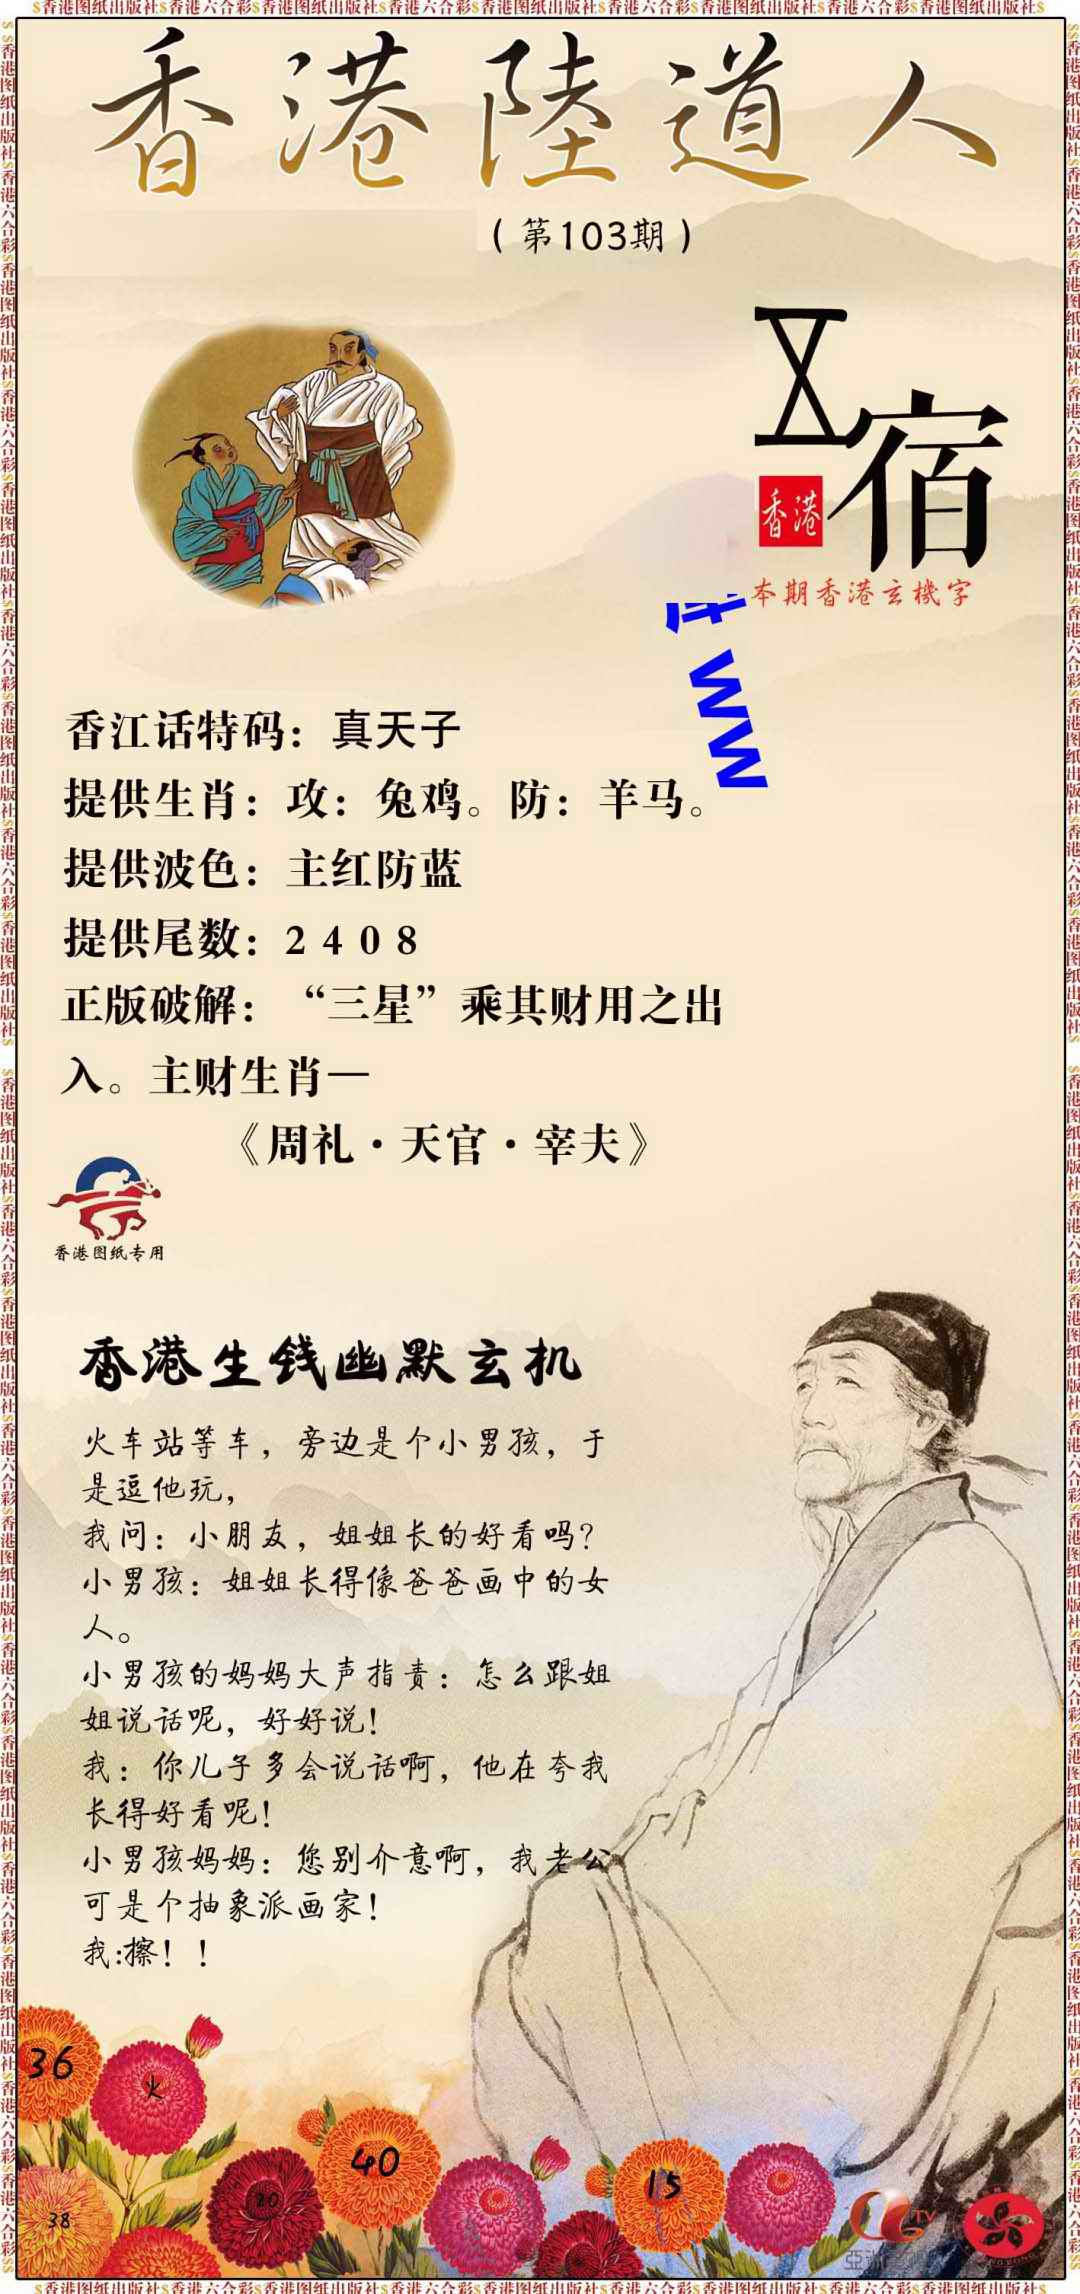 $香港图纸出版社$香港六合彩$香港图纸出版社$香港六合彩$香港图纸出版社$香港六合彩$香港图纸出版社$
香港陸道人
（第103期）
宿
香港
本期香港玄機字
WW
香江话特码：真天子
提供生肖：攻：兔鸡。防：羊马。
提供波色：主红防蓝
提供尾数：2 4 0 8
正版破解：“三星”乘其财用之出
入。主财生肖—
《周礼·天官·宰夫》
香港图纸专用
香港生钱幽默玄机
火车站等车，旁边是个小男孩，于
是逗他玩，
我问：小朋友，姐姐长的好看吗？
小男孩：姐姐长得像爸爸画中的女
人。
小男孩的妈妈大声指责：怎么跟姐
姐说话呢，好好说！
我：你儿子多会说话啊，他在夸我
长得好看呢！
小男孩妈妈：您别介意啊，我老公
可是个抽象派画家！
我:擦！！
36
火
40
15
20
38
TV
$香港图纸出版社$香港六合彩$香港图纸出版社$香港六合彩$香港图纸出版社$香港六合彩$香港图纸出版社$